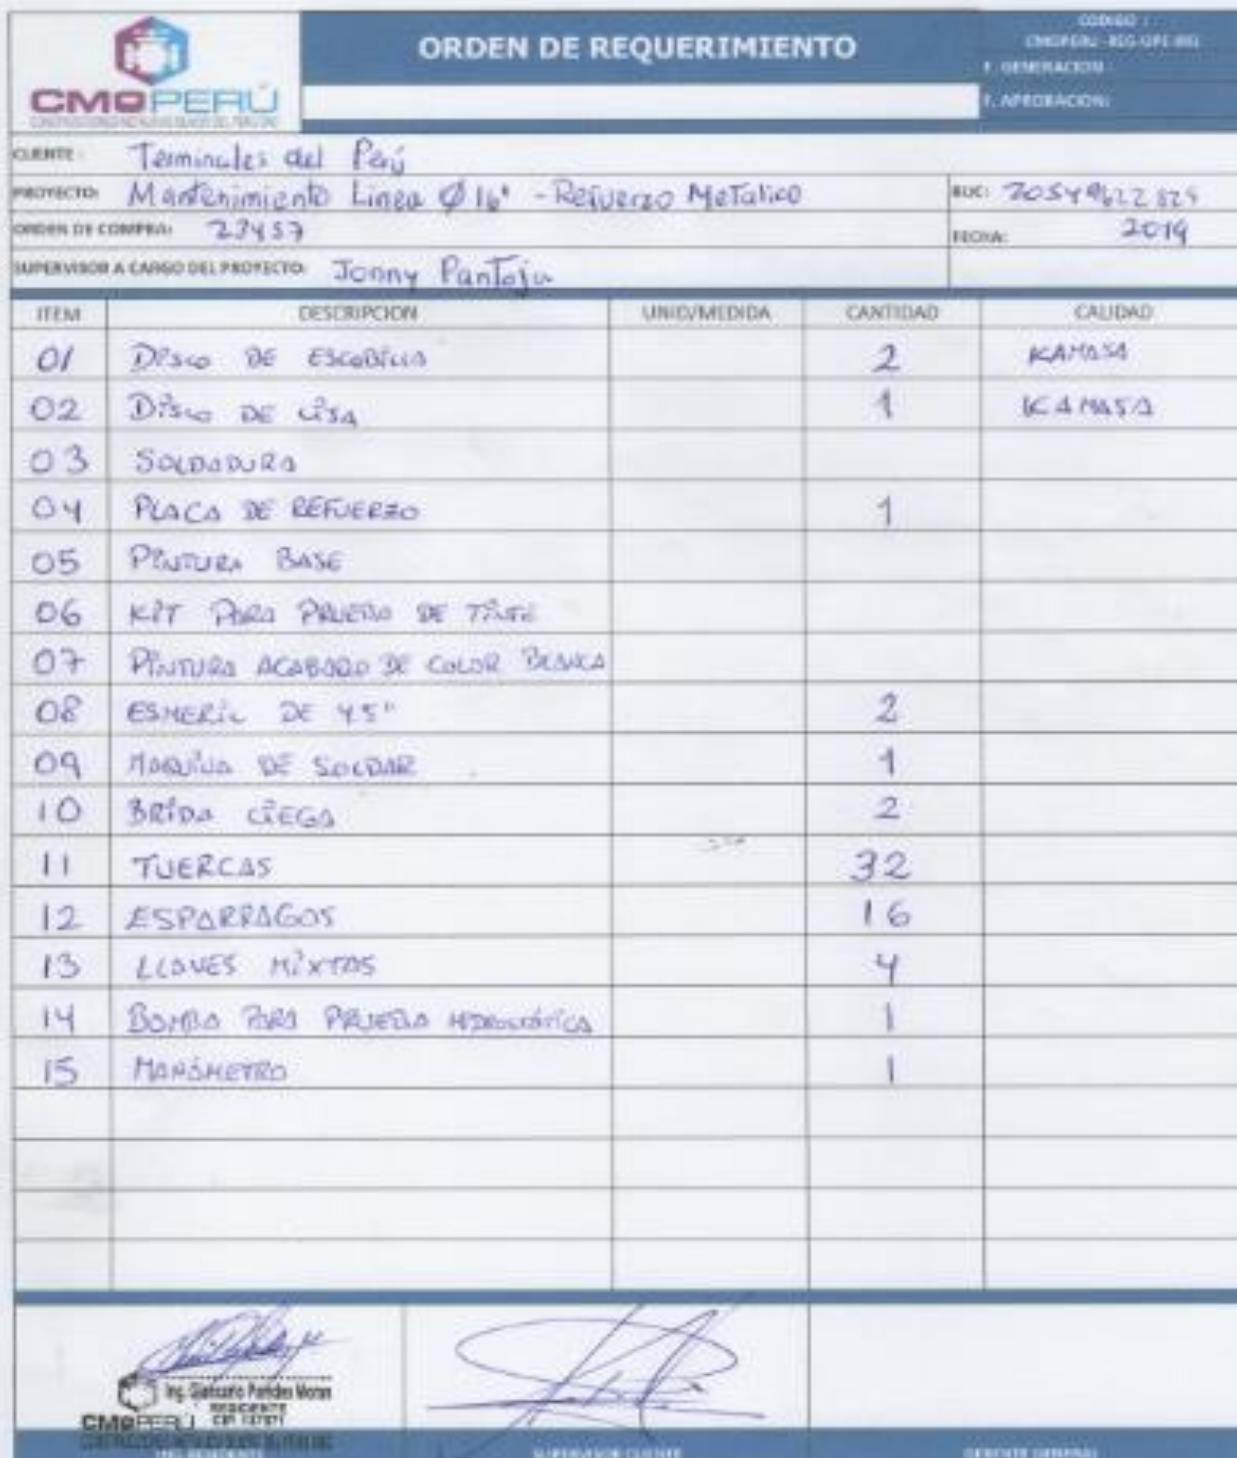 CMOPERÚ
ORDEN DE REQUERIMIENTO
CODIGO :
F. GENERACION:
F. APROBACION:
CLIENTE: Terminales del Perú
PROYECTO: Mantenimiento Linea Ø 16" - Refuerzo Metalico RUC:
ORDEN DE COMPRA: 23457 FECHA: 2019
SUPERVISOR A CARGO DEL PROYECTO: Jonny Pantoja
ITEM DESCRIPCION UNID/MEDIDA CANTIDAD CALIDAD
01 DISCO DE ESCOBILLA 2 KAMASA
02 DISCO DE LIJA 1 KAMASA
03 SOLDADURA
04 PLACA DE REFUERZO 1
05 PINTURA BASE
06 KIT PARA PRUEBA DE TINTE
07 PINTURA ACABADO DE COLOR BLANCA
08 ESMERIL DE 4.5" 2
09 MAQUINA DE SOLDAR 1
10 BRIDA CIEGA 2
11 TUERCAS 32
12 ESPARRAGOS 16
13 LLAVES MIXTAS 4
14 BOMBA PARA PRUEBA HIDROSTÁTICA 1
15 MANÓMETRO 1
RESIDENTE
CMOPERÚ
ING RESIDENTE SUPERVISOR CLIENTE GERENTE GENERAL